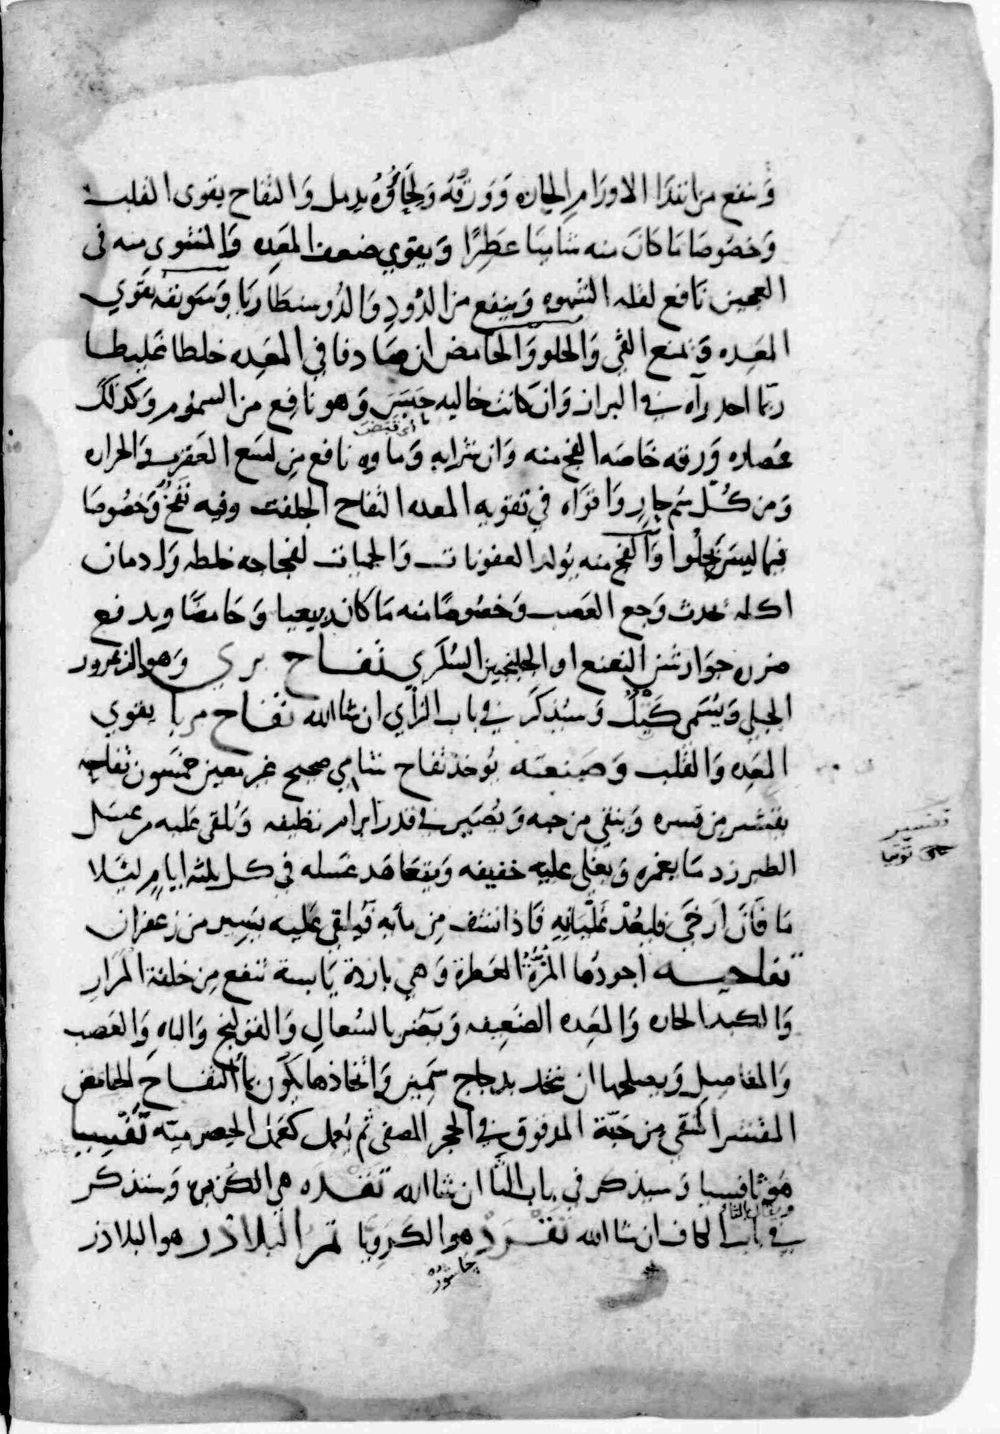 وينفع من ابتدا الاورام الحاره وورقه ولحاؤه يدمل والتفاح يقوى القلب
وخصوصا ما كان منه شاميا عطرا ويقوي ضعف المعده والمشوي منه في
العجين نافع لقله الشهوه وينفع من الدود والدوسنطاريا وسويقه يقوي
المعده ويمنع القي والحلو والحامض ان صادفا في المعده خلطا غليظا
ربما احدراه في البراز وان كانت خاليه حبس وهو نافع من السموم وكذلك
اى قبض
عصاره ورقه خاصه الفج منه وان شرابه وماوه نافع من لسع العقرب والجراره
ومن كل سم حار واقواه في تقويه المعده التفاح الجلفت وفيه نفخ وخصوصا
فيما ليس بحلو والفج منه يولد العفونات والحميات لفجاجه خلطه وادمان
اكله يحدث وجع العصب وخصوصا منه ما كان ربيعيا وحامضا ويدفع
ضرره جوارشن النعنع او الجلنجبين السكري تفاح بري وهو الزعرور
الجبلي ويسمى كيل وسيذكر في باب الزاي ان شا الله تفاح مربا يقوي
المعده والقلب وصنعته يوخذ تفاح شامي صحيح غير معيب خمسون تفاحه
يقشر من قشره وينقي من حبه ويصير في قدر برام نظيفه ويلقى عليه من عسل
الطبرزد ما يغمره ويغلي عليه خفيفه ويتعاهد عسله في كل ثلثه ايام ليلا
ما فان ارخى فليعد غليانه فاذا نشف من مايه فيلقي عليه يسير من زعفران
تفاحيه اجودها المزه العطرة وهي بارده يابسة تنفع من خلفة المرار
والكبد الحاره والمعده الضعيفه ويضر بالسعال والقولنج والباه والعصب
والمفاصل ويصلحها ان تتخذ بدجاج سمين واتخاذها يكون بما التفاح الحامض
المقشر المنقي من حبه المدقوق في الحجر المصفى ثم يعمل كعمل الحصرميه تفسيا
هو ثافسيا وسيذكر في باب الثا ان شا الله تقده هي الكزبره وسنذكر
في باب الكاف ان شا الله تقرد هو الكرويا تمر البلاذر هو البلاذر
تفسير